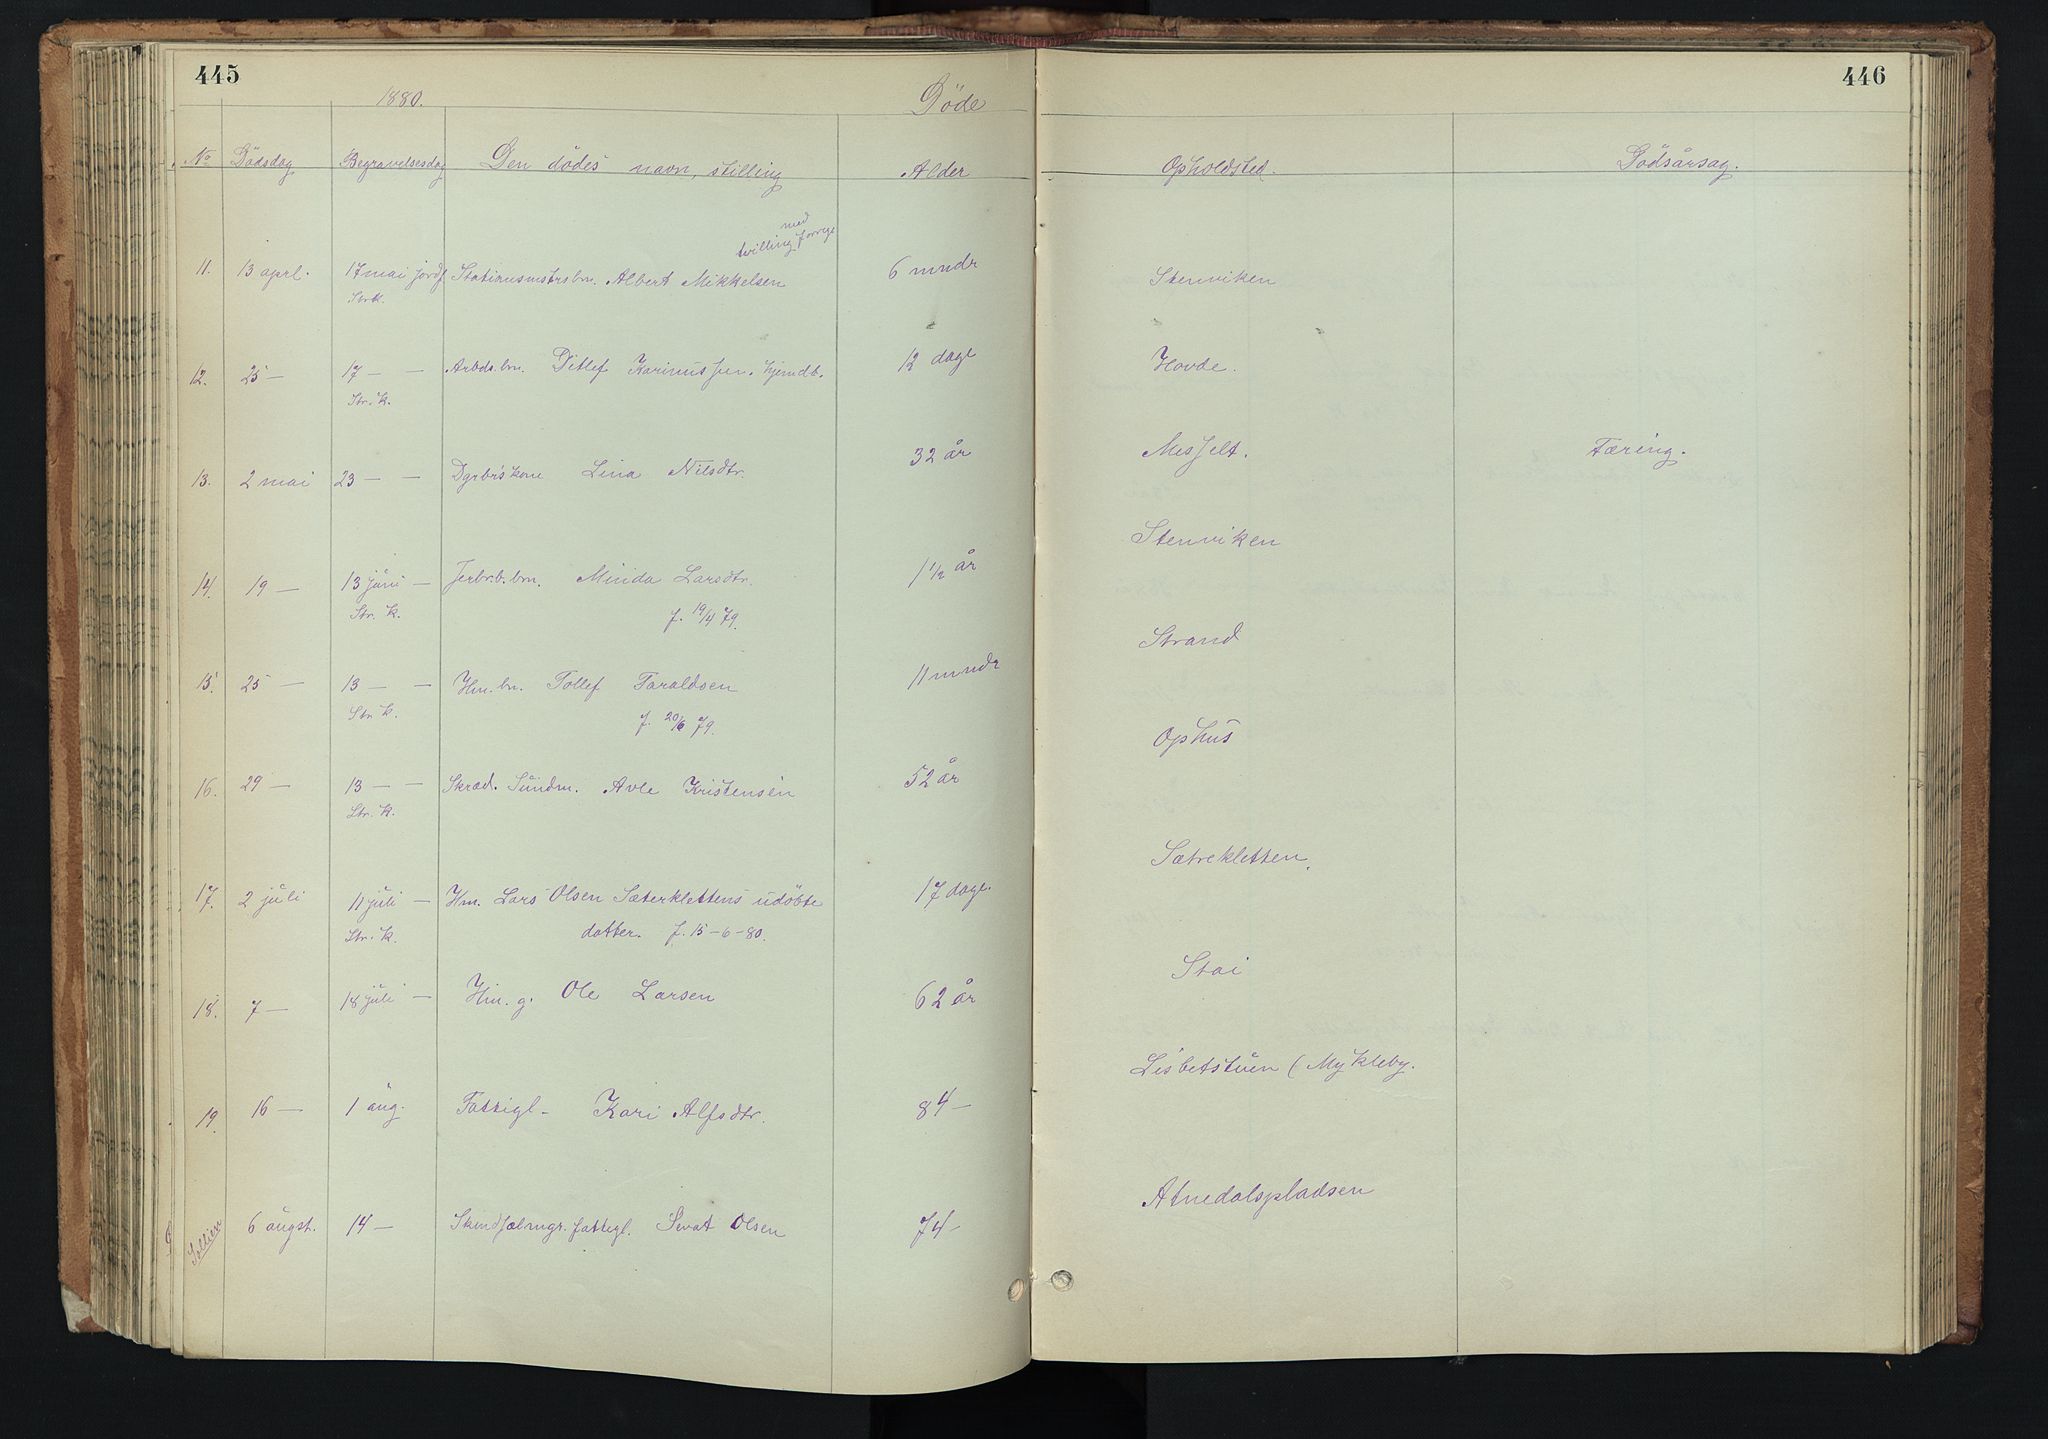 445
446
1880.
Döde
No Dödsdag Begravelsesdag Den dödes navn, stilling Alder Opholdsted. Dödsårsag.
med
tvilling forrige
11. 13 aprl. 17 mai jordf. Stationsmstrsbn. Albert Mikkelsen 6 mndr Stenviken
Str.k.
12. 25 — 17 — — Arbds.bn. Ditlef Karinussen. hjemdb. 12 dage Hovde.
Str. k.
13. 2 mai 23 — — Lina Nilsdtr. 32 år Messelt. Tæring.
14. 19 — 13 juni — Jerbr.b.bn. Minda Larsdtr. 1 1/2 år Stenviken
Str. k. f. 19/4 79.
15. 25 — 13 — — Hm. bn. Tollef Taraldsen 11 mndr Strand
Str. k. f. 20/6 79.
16. 29 — 13 — — Skræd. Sundm. Avle Kristensen 52 år Ophus
Str. k.
17. 2 juli 11 juli — Hm. Lars Olsen Sæterklettens udöbte 17 dage. Sætrekletten.
Str. k. datter. f. 15-6-80.
18. 7 — 18 juli — Hm. g. Ole Larsen 62 år Stai
19. 16 — 1 aug. Fattigl — Kari Alfsdtr. 84 — Lisbetstuen (Mykleby.
Sollien 6 augst. 14 — fattigl. Olsen 74 — Atnedalspladsen